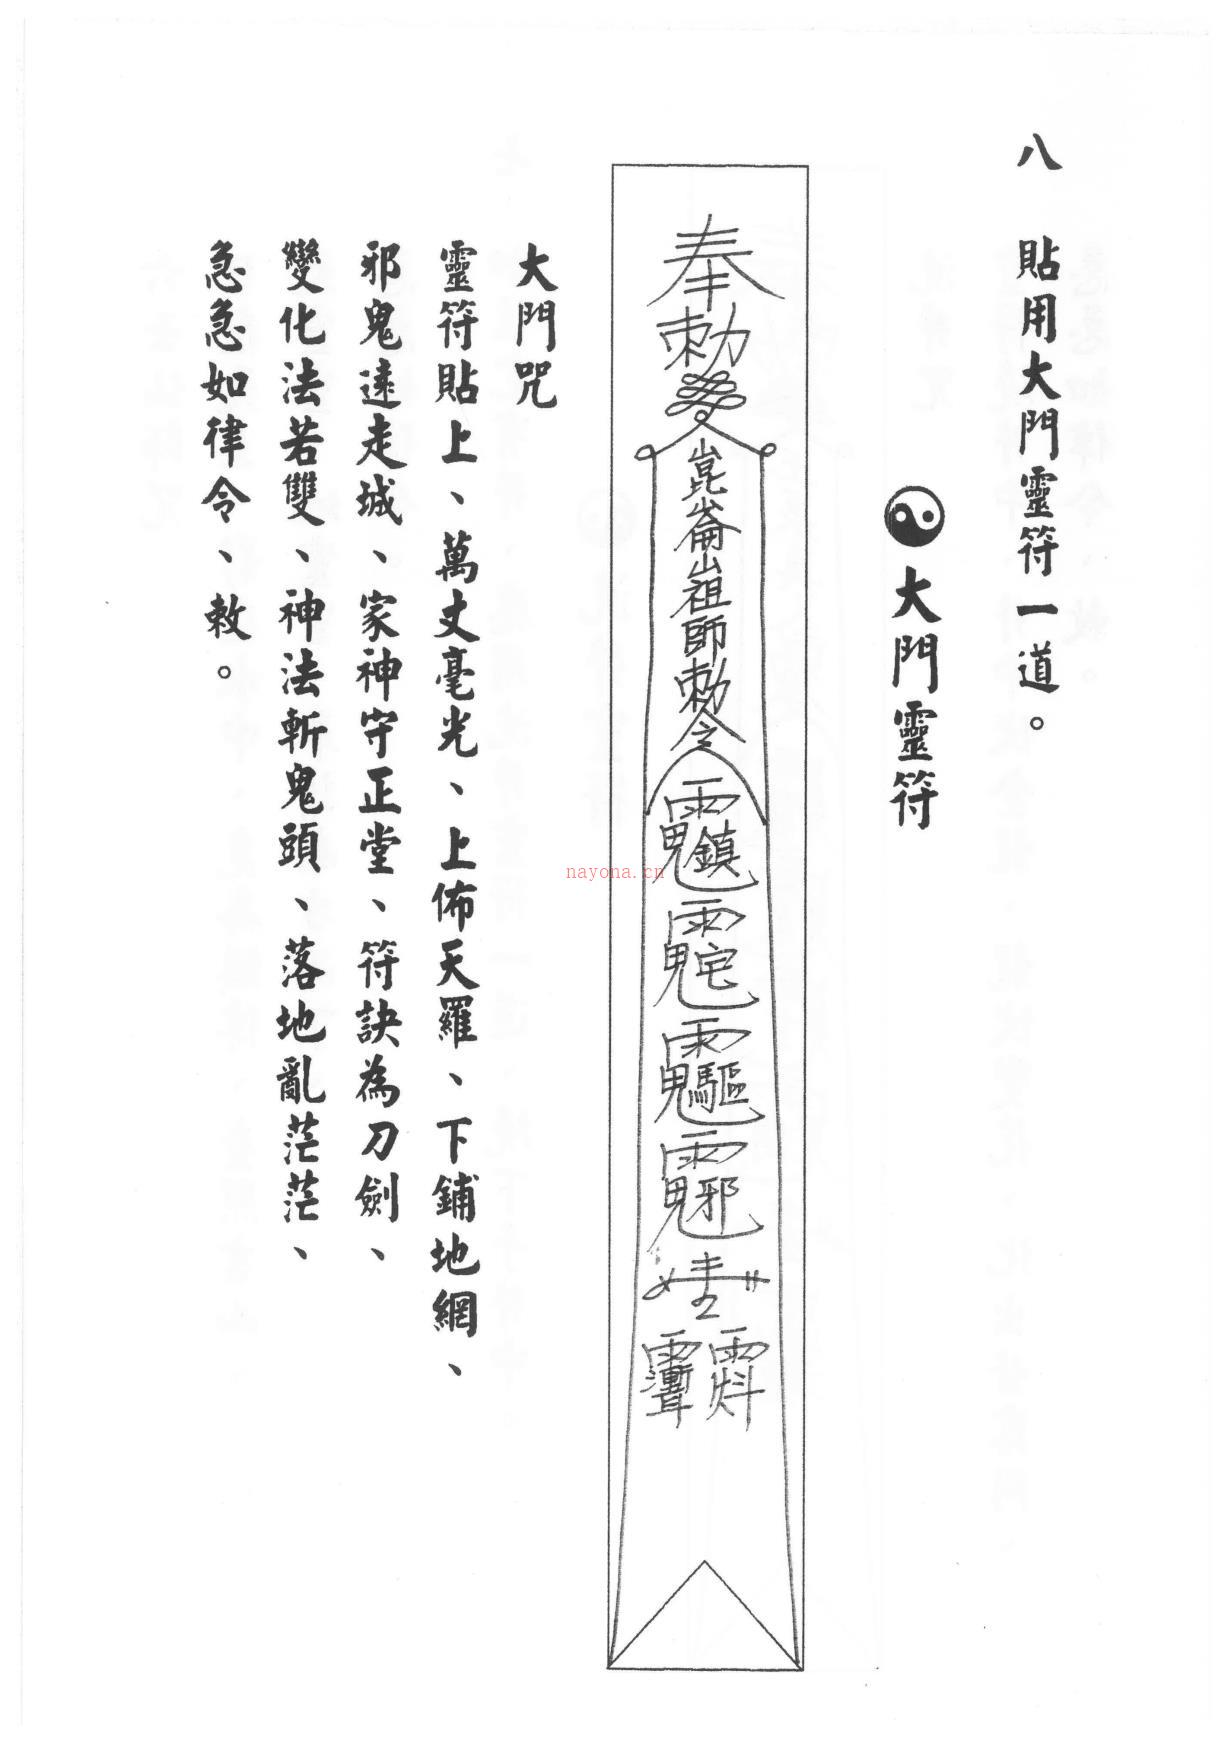 八　貼用大門靈符一道。
☯大門靈符
奉勅
崑崙山祖師勅令
鎮
宅
驅
邪
大門咒
靈符貼上、萬丈毫光、上佈天羅、下鋪地網、
邪鬼遠走城、家神守正堂、符訣為刀劍、
變化法若雙、神法斬鬼頭、落地亂茫茫、
急急如律令、敕。
nayona.cn